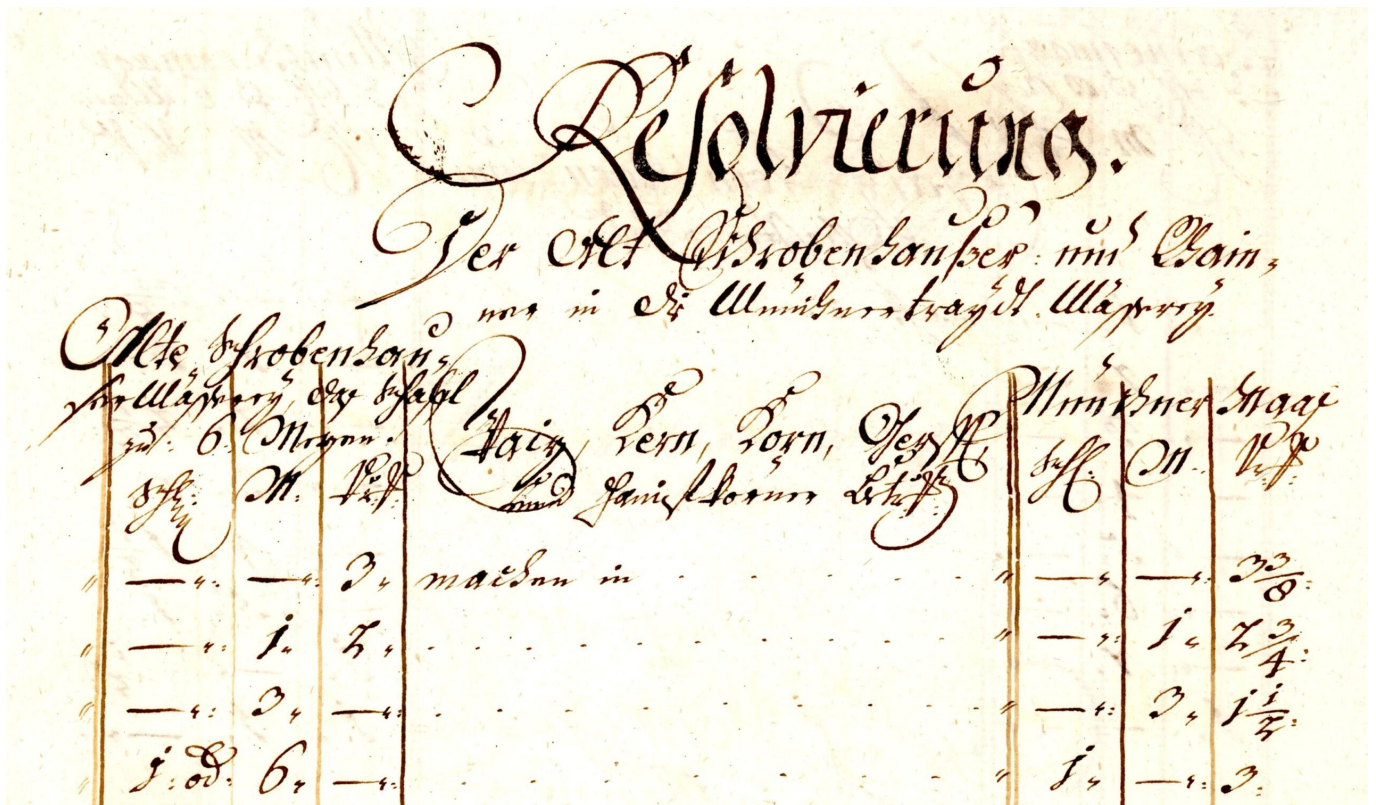 Resolvierung.
Der Alt Schrobenhaußer und Rain-
ner in die Münchnertraydt Mässerey
Alte Schrobenhau-
ser Mässerey, das Schäfl
zu: 6: Mezen.
Schl: M: Vrtl:
Waiz, Kern, Korn, Gersst,
und Hanifkörner Betrfl:
Münchner Maas
Schl: M: Vrtl:
" — ": — ": 3 " machen in . . . . . . " — " — ": 3 3/8:
" — ": 1 " 2 " . . . . . . . . " — ": 1 " 2 3/4:
" — ": 3 " — ": . . . . . . . . " — ": 3 " 1 1/2:
" 1: od: 6 " — ": . . . . . . . . " 1 " — ": 3: